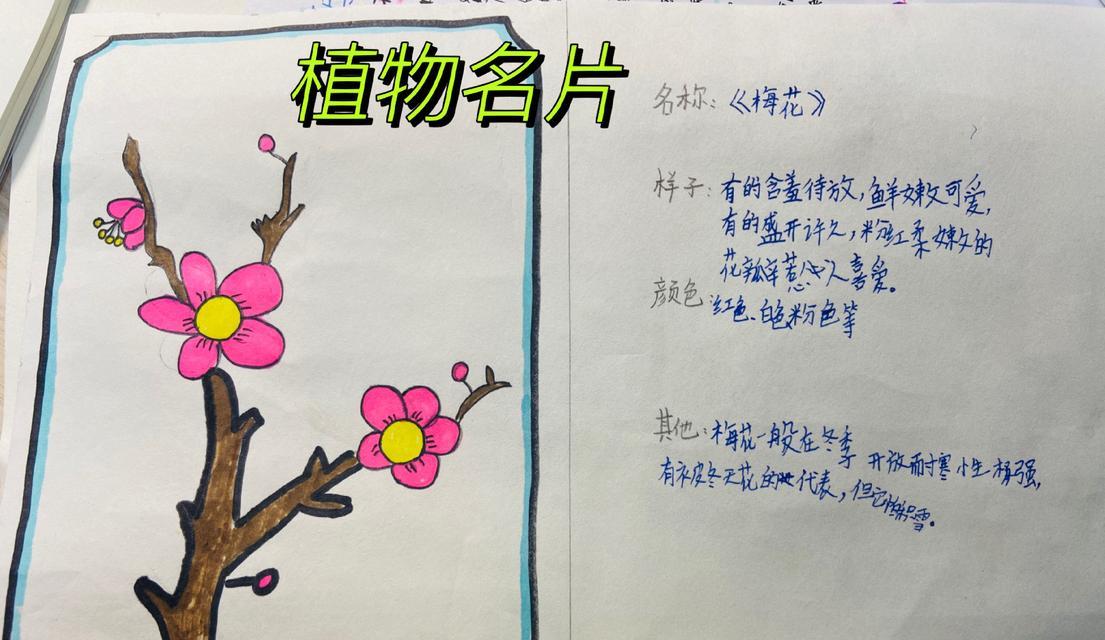 植物名片
名称：《梅花》
样子：有的含羞待放，鲜嫩可爱，
有的盛开许久，粉红柔嫩的
花瓣惹人喜爱。
颜色：红色、白色粉色等
其他：梅花一般在冬季开放耐寒性较强，
有冬天花的代表，但它惧雪。